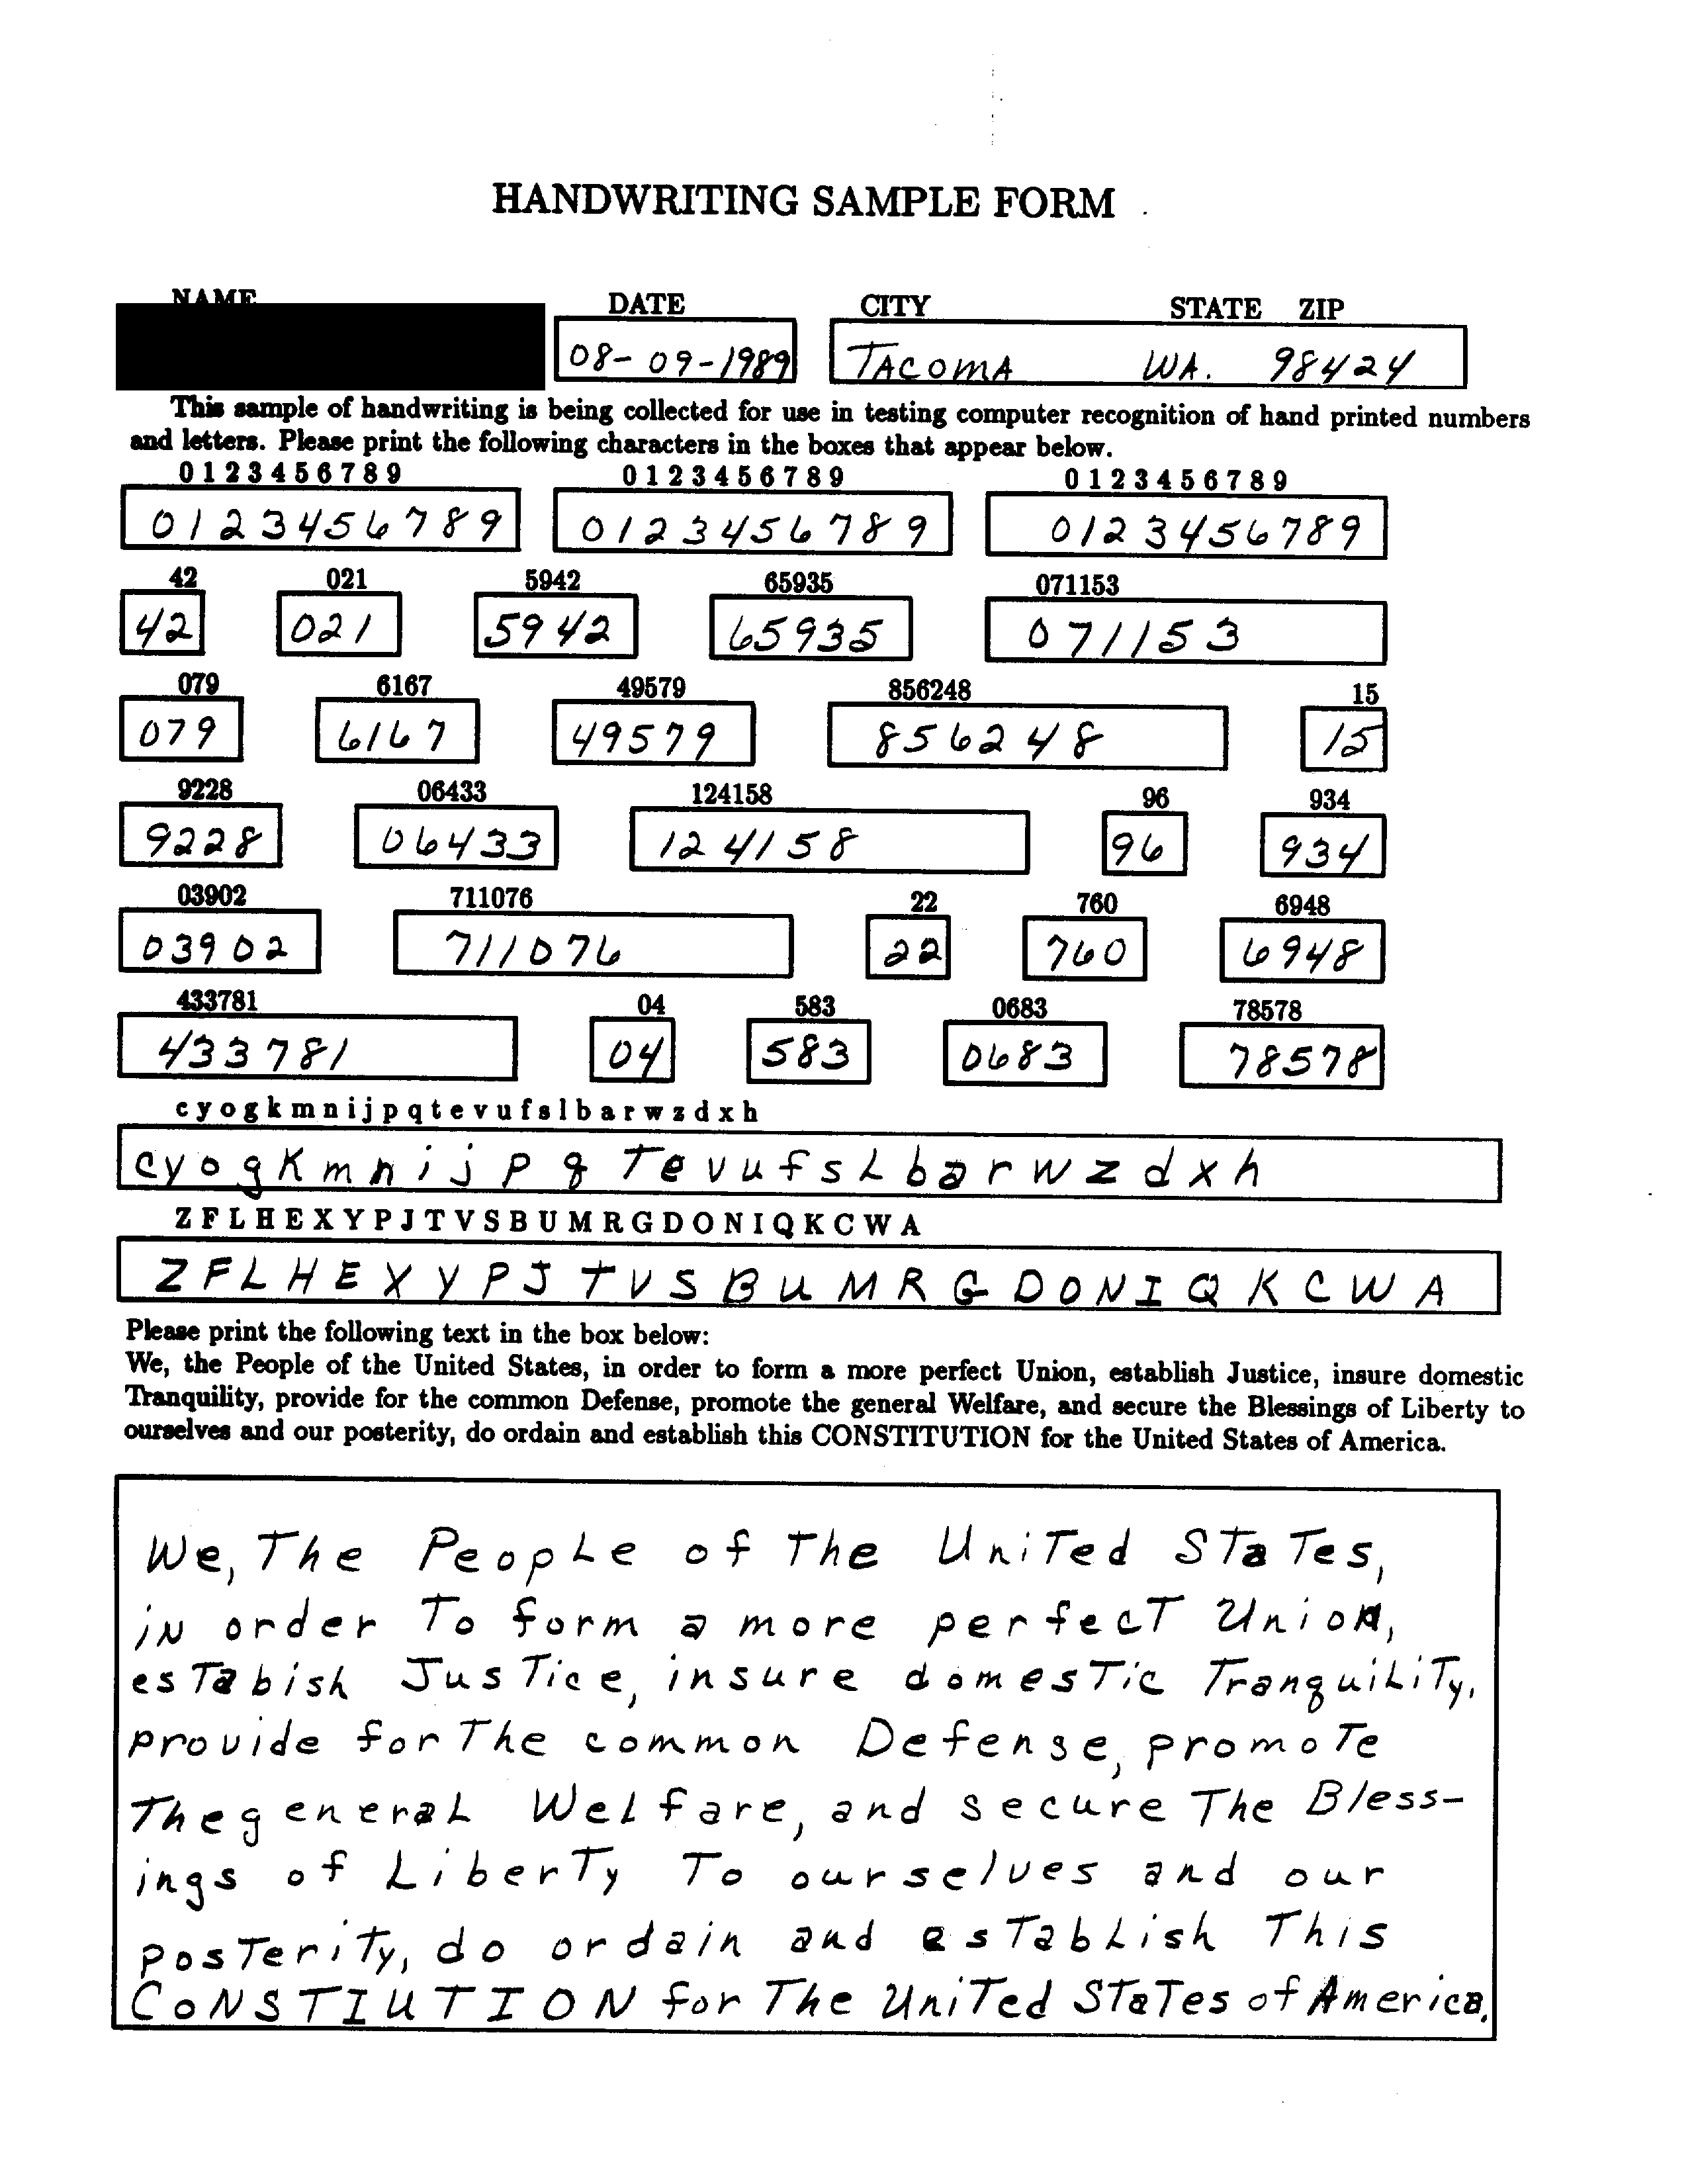 HANDWRITING SAMPLE FORM
NAME DATE CITY STATE ZIP
08-09-1989 TACOMA WA. 98424
This sample of handwriting is being collected for use in testing computer recognition of hand printed numbers
and letters. Please print the following characters in the boxes that appear below.
0 1 2 3 4 5 6 7 8 9 0 1 2 3 4 5 6 7 8 9 0 1 2 3 4 5 6 7 8 9
0 1 2 3 4 5 6 7 8 9 0 1 2 3 4 5 6 7 8 9 0 1 2 3 4 5 6 7 8 9
42 021 5942 65935 071153
42 021 5942 65935 071153
079 6167 49579 856248 15
079 6167 49579 856248 15
9228 06433 124158 96 934
9228 06433 124158 96 934
03902 711076 22 760 6948
03902 711076 22 760 6948
433781 04 583 0683 78578
433781 04 583 0683 78578
c y o g k m n i j p q t e v u f s l b a r w z d x h
c y o g K m n i j p q T e v u f s L b a r w z d x h
Z F L H E X Y P J T V S B U M R G D O N I Q K C W A
Z F L H E X Y P J T V S B U M R G D O N I Q K C W A
Please print the following text in the box below:
We, the People of the United States, in order to form a more perfect Union, establish Justice, insure domestic
Tranquility, provide for the common Defense, promote the general Welfare, and secure the Blessings of Liberty to
ourselves and our posterity, do ordain and establish this CONSTITUTION for the United States of America.
We, The PeopLe of The UniTed STaTes,
iN order To form a more perfecT Union,
esTabish JusTice, insure domesTic TranquiLiTy,
provide for The common Defense, promoTe
The generaL WeLfare, and secure The Bless-
ings of LiberTy To ourselves and our
posTeriTy, do ordain and esTabLish This
CoNSTIUTION for The UniTed STaTes of America.